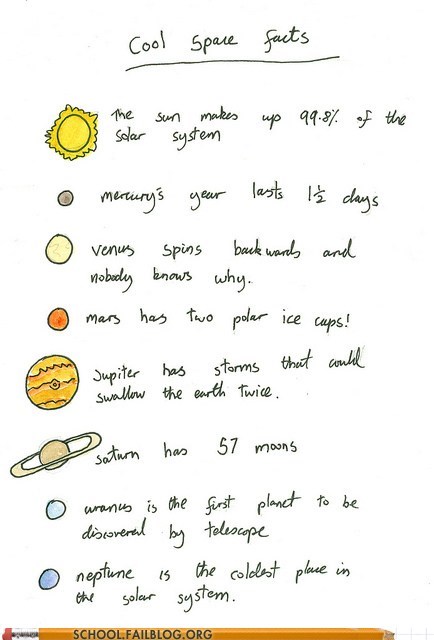 Cool Space facts
The sun makes up 99.8% of the
solar system
mercury's year lasts 1½ days
venus spins backwards and
nobody knows why.
mars has two polar ice caps!
Jupiter has storms that could
swallow the earth twice.
saturn has 57 moons
uranus is the first planet to be
discovered by telescope
neptune is the coldest place in
the solar system.
SCHOOL.FAILBLOG.ORG